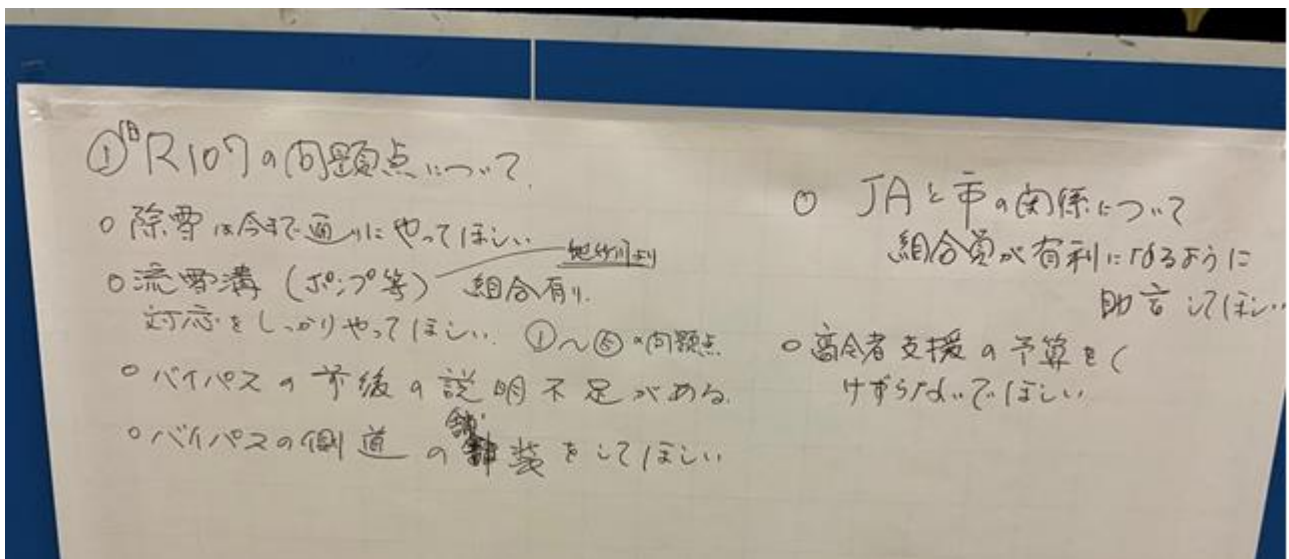 ①旧R107の問題点について
○除雪は今まで通りにやってほしい
○流雪溝(ポンプ等) 組合有り.
川より
対応をしっかりやってほしい. ①〜⑤の問題点
○バイパスの前後の説明不足がある.
○バイパスの側道の舗装をしてほしい
○ JAと市の関係について
組合員が有利になるように
助言してほしい
○高令者支援の予算を
けずらないでほしい